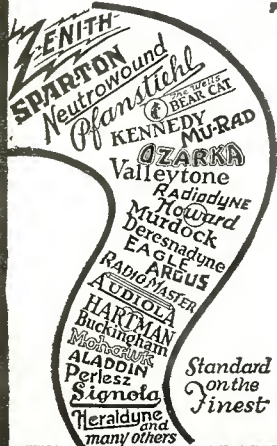 ZENITH
SPARTON
Neutrowound
Pfanstiehl
The Wells
BEAR CAT
KENNEDY
MU-RAD
OZARKA
Valleytone
RADIODYNE
Howard
Murdock
Deresnadyne
EAGLE
ARGUS
RADIO MASTER
AUDIOLA
HARTMAN
Buckingham
Mohawk
ALADDIN
Perlesz
Signola
Heraldyne
and
many others
Standard
on the
Finest